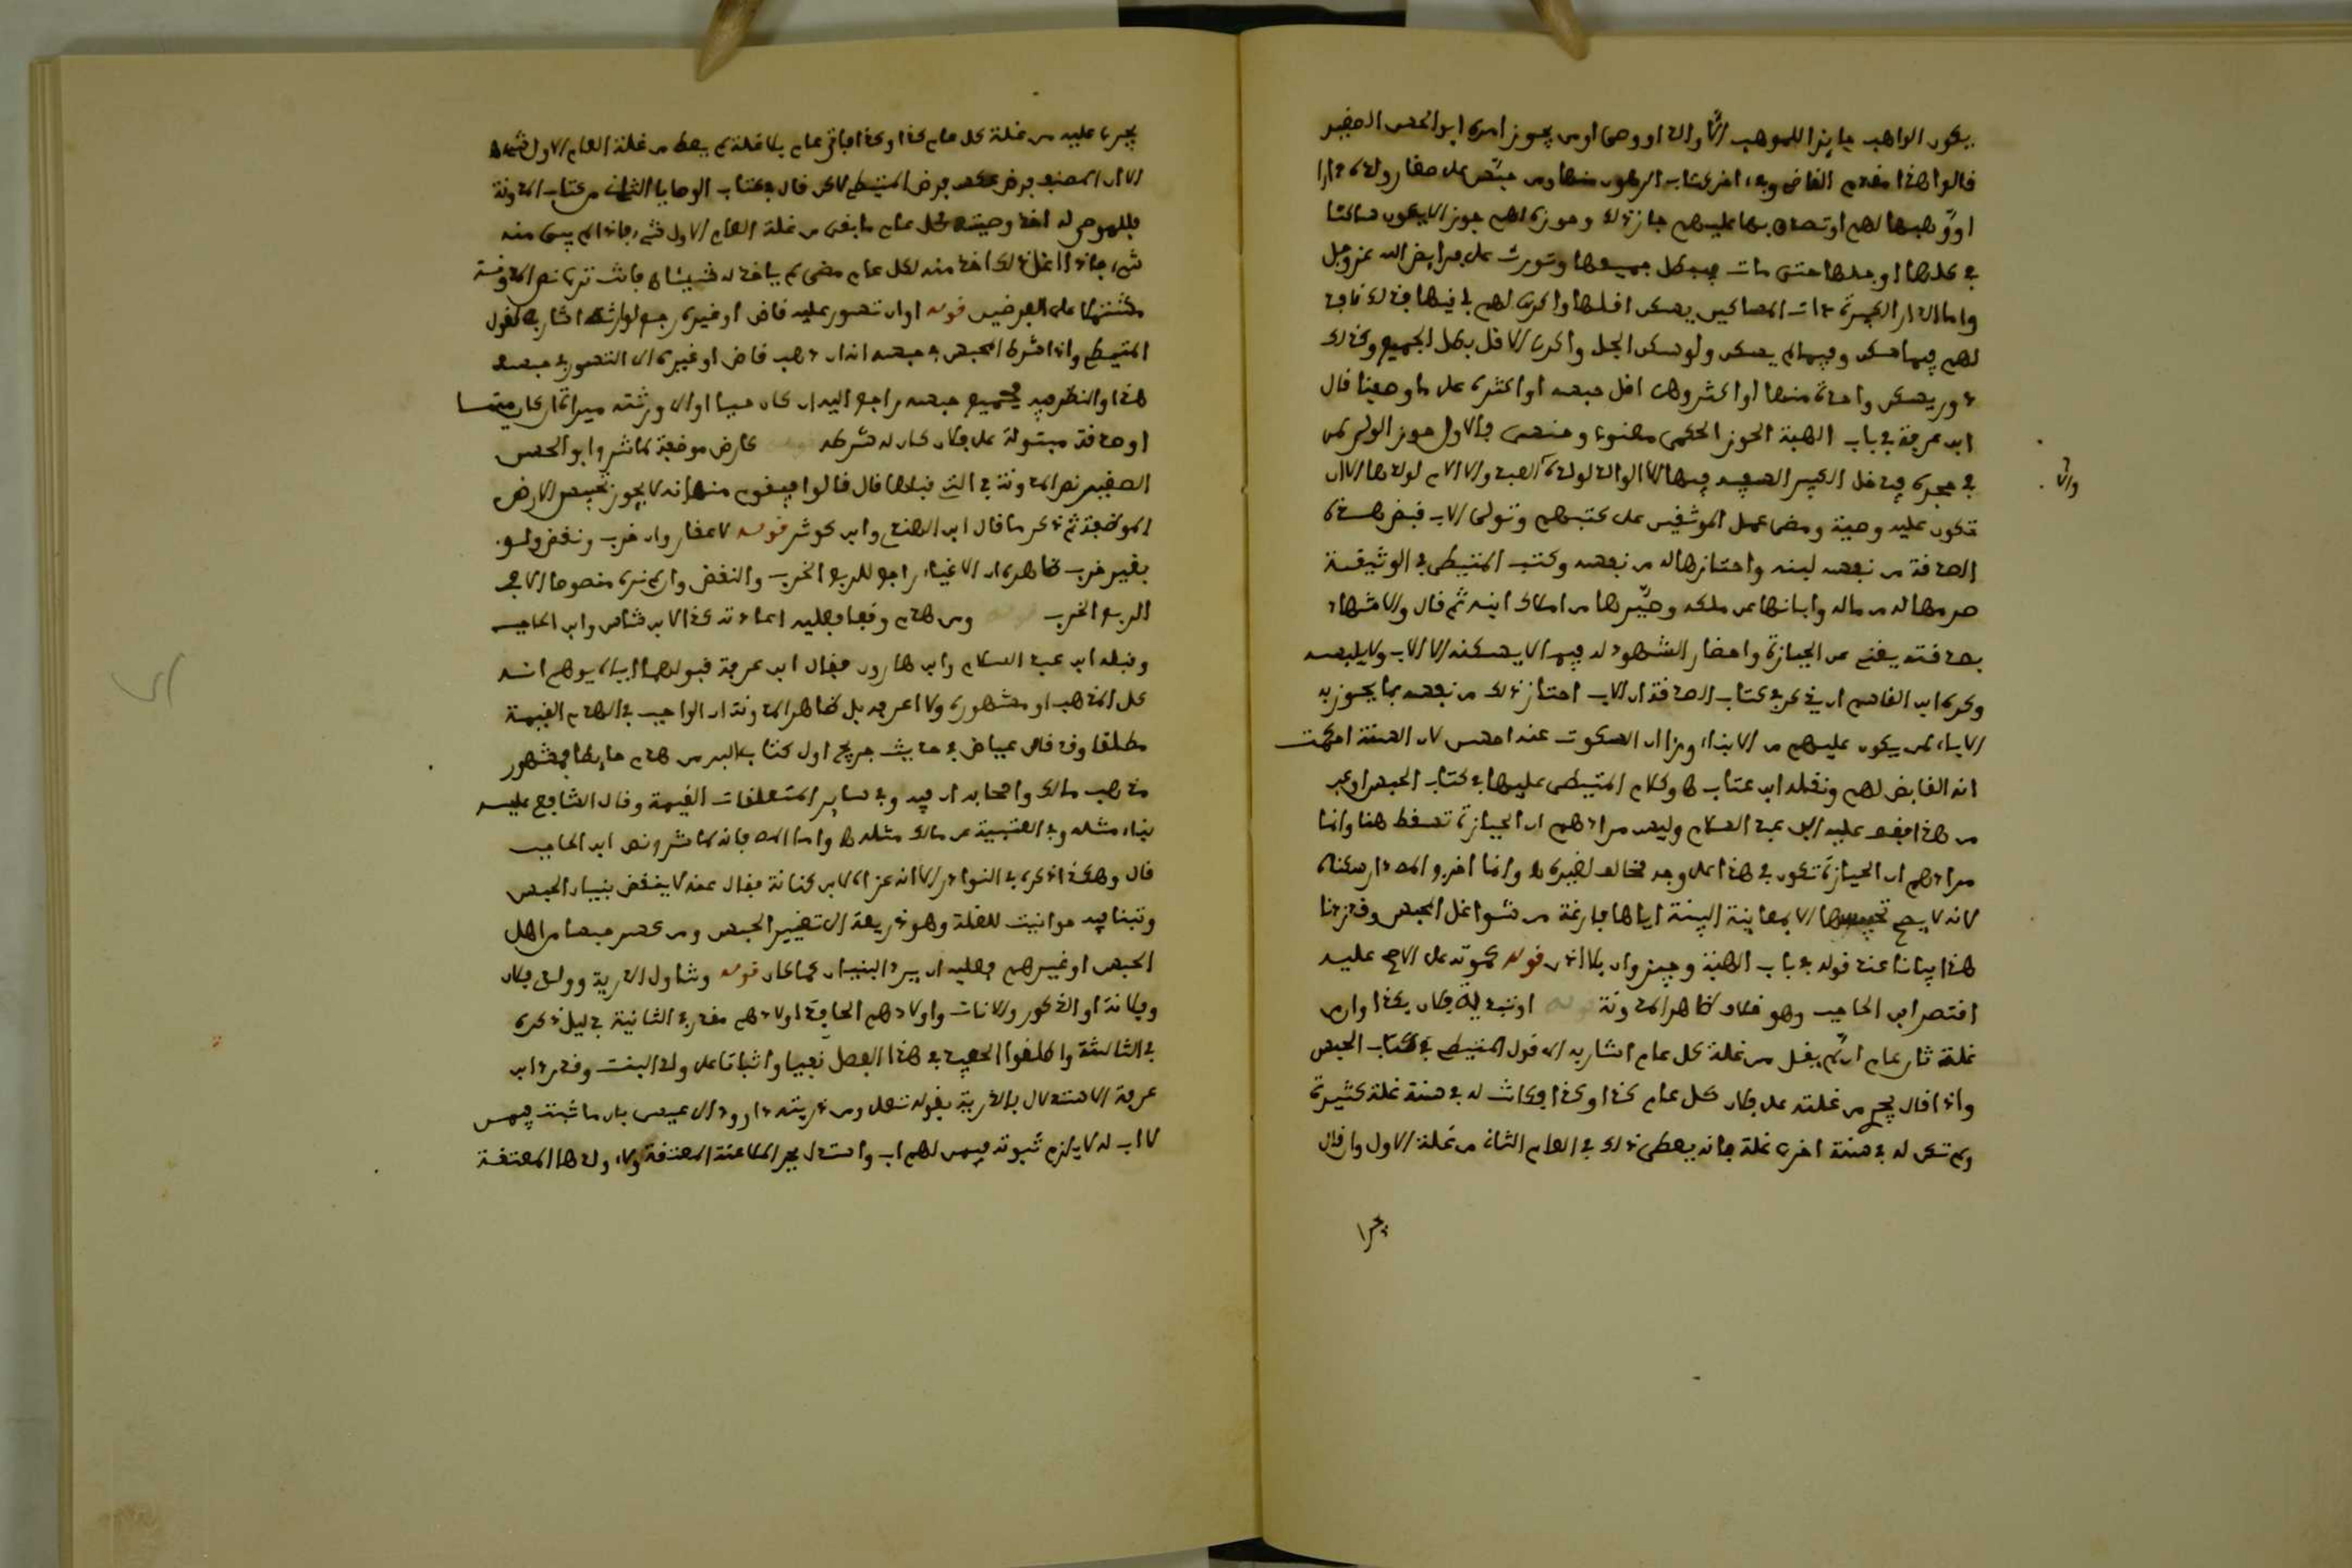 يكون الواهب حايزا للموهب الا والد او وصي او من يجوز امره ابو الحسن الصغير
قالوا هذا مقدم القاضي وفي اخر كتاب الرهون منها ومن حبس على صغار ولده دارا
او وهبها لهم او تصدق بها عليهم جاز ذلك وحوزه لهم حوز الا ان يكون ساكنا
في كلها او جلها حتى مات فيبطل جميعها وتورث على فرايض الله عز وجل
واما الدار الكبيرة ذات المساكين يسكن اقلها واكرى لهم باقيها فذلك نافذ
لهم فيما سكن وفيما لم يسكن ولو سكن الجل واكرى الاقل بطل الجميع وكذلك
دور يسكن واحدة منها او اكثر وهي اقل حبسه او اكثره على ما وصفنا قال
ابن عرفة في باب الهبة الحوز الحكمي
في حجره فيدخل الكبير السفيه فيها الا الوالد لولده العبد والا الام لولدها الا ان
تكون عليه وصية ومضى عمل الموثقين على كتبهم وتولى الاب قبض هذه
الصدقة من نفسه لبنه واحتازها له من نفسه وكتب المتيطي في الوثيقة
صرمها له من ماله وابانها عن ملكه وصيرها من املاك ابنه ثم قال والاشهاد
بصدقته يغني عن الحيازة واحضار الشهود له فيما لا يسكنه الا الاب ولا يلبسه
وكره ابن القاسم ان يذكر في كتاب الصدقة ان الاب احتاز ذلك من نفسه بما يجوز به
الاباء لمن يكون عليهم من الابناء وراى ان السكوت عنه احسن لان السنة احكمت
انه القابض لهم ونقله ابن عتاب وكلام المتيطي عليها في كتاب الحبس
من هذا فقف عليه ابن عبد السلام وليس مرادهم ان الحيازة تسقط هنا وانما
مرادهم ان الحيازة تكون في هذا على وجه مخالف لغيره وانما اخرجوا دار سكناه
لانه لا يصح تحبيسها الا بمعاينة البينة اياها فارغة من شواغل المحبس وقد زدنا
هذا بيانا عند قوله في باب الهبة وحيز وان بلا اذن قوله كموته على الاصح عليه
اقتصر ابن الحاجب وهو خلاف ظاهر المدونة قوله او
غلة ثان عام ان لم يفل من غلة كل عام اشار به الى قول المتيطي في كتاب الحبس
واذا قال يجرى من غلته على فلان كل عام كذا وكذا فكانت له في سنة غلة كثيرة
ولم تكن له في سنة اخرى غلة فانه يعطى ذلك في العام الثاني من غلة الاول وان قال
يجرا
يجرى عليه من غلة كل عام كذا وكذا فياتي عام بلا غلة لم يعط من غلة العام الاول شيا
الا ان المصنف فرض عكس فرض المتيطي لكن قال في كتاب الوصايا الثاني من كتاب المدونة
فللموصى له اخذ وصيته كل عام ما بقي من غلة العام الاول شيء فاذا لم يبق منه
شيء فاذا اغل ذلك اخذ منه لكل عام مضى لم ياخذ له شيئا فانت ترى نص المدونة
مشتملا على الفرضين قوله او ان تسور عليه قاض او غيره رجع لوارثه اشار به لقول
المتيطي واذا شرط المحبس في حبسه انه ان ذهب قاض او غيره الى التسور في حبسه
هذا والنظر فيه فجميع حبسه راجع اليه ان كان حيا او الى ورثته ميراثا ان كان ميتا
او صدقة مبتولة على فلان كان له شرطه عارض موضعه كاشر وابو الحسن
الصغير نص المدونة في التي قبلها قال قالوا فيقوم منها انه لا يجوز تحبيس الارض
الموظفة ثم ذكر ما قال ابن الهندي وابن كوثر قوله لا عقار وان خرب ونقض ولو
بغير خرب ظاهره ان الاغياء راجع للربع الخرب والنقض وان لم نره منصوصا الا في
الربع الخرب قوله ومن هدم وقفا فعليه اعادته كذا لابن شاس وابن الحاجب
وقبله ابن عبد السلام وابن هارون فقال ابن عرفة قبولهما اياه يوهم انه
كل المذهب او مشهوره ولا اعرفه بل ظاهر المدونة ان الواجب في الهدم القيمة
مطلقا وقد قال عياض في حديث جريج اول كتاب البر من هدم حايطا فمشهور
مذهب مالك واصحابه ان فيه وفي ساير المتلفات القيمة وقال الشافعي عليه
بناء مثله وفي العتبية عن مالك مثله واما المص فانه كاشر ونص ابن الحاجب
قال وهكذا ذكره في النوادر الا انه عزاه لابن كنانة فقال عنه لا ينقض بنيان الحبس
وتبنا فيه حوانيت للغلة وهو ذريعة الى تغيير الحبس ومن كسر حبسا من اهل
الحبس او غيرهم فعليه ان يرد البنيان كما كان قوله وتناول الذرية وولدي فلان
وفلانة او الذكور والاناث واولادهم الحافد اولادهم مقدر في الثانية بدليل ذكره
في الثالثة واطلقوا الحفيد في هذا الفصل نفيا واثباتا على ولد البنت وقد رد ابن
عرفة الاستدلال بالذرية بقوله تعلى ومن ذريته داوود الى عيسى بان ما ثبت فيمن
لا اب له لا يلزم ثبوته فيمن لهم اب واستدل بجر الملاعنة المعتقة ولاء ولدها المعتقة